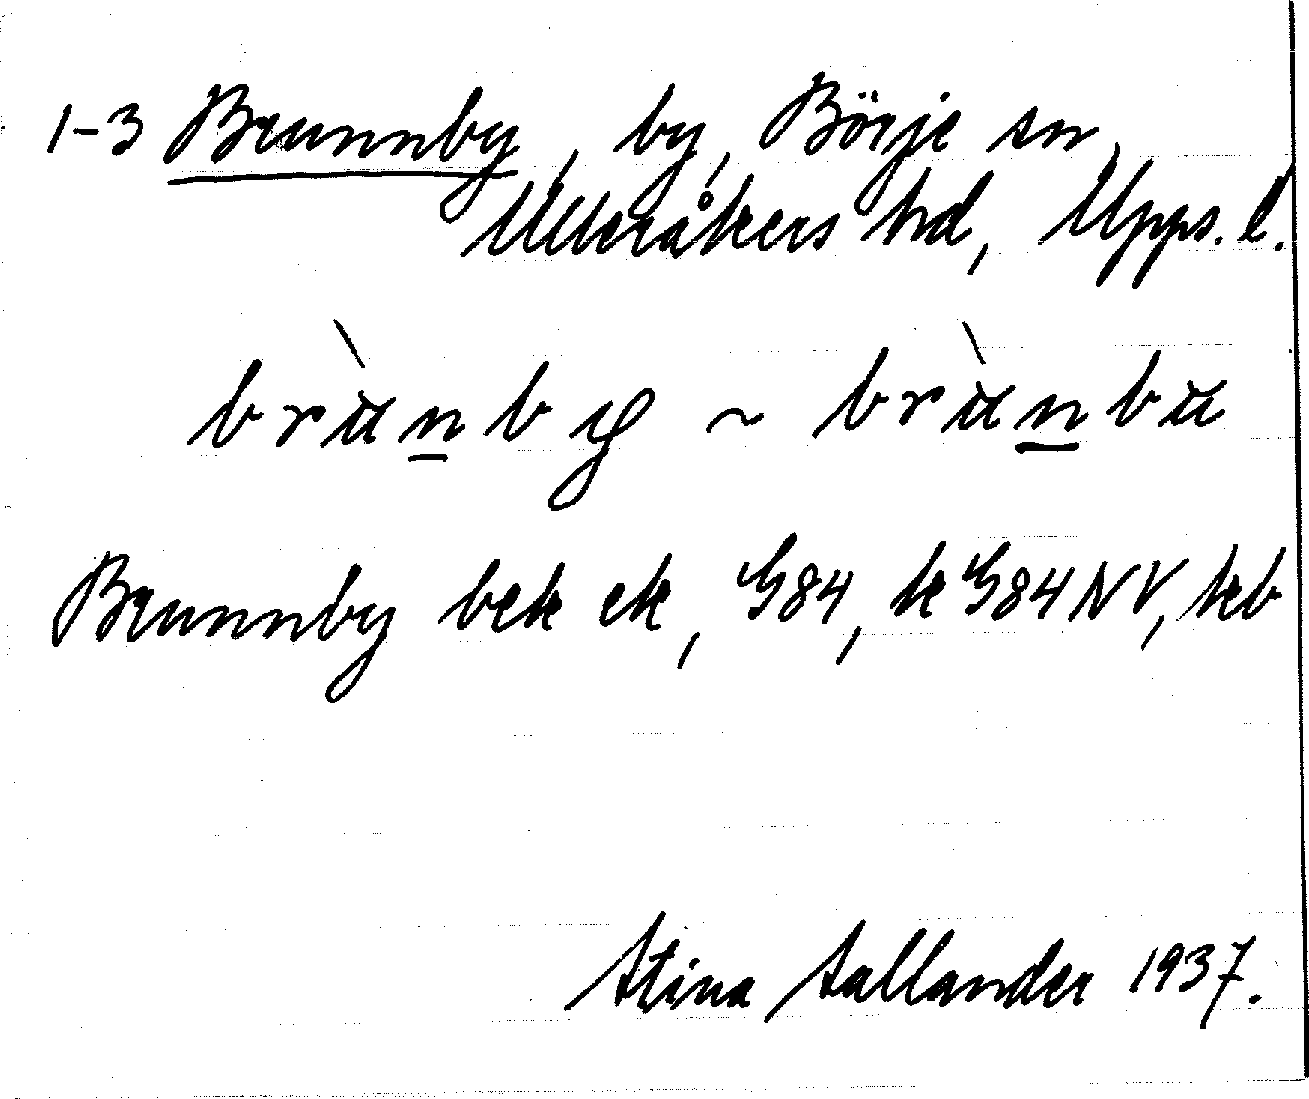 1-3 Brunnby, by, Börje sn,
Ulleråkers hd, Upps. l.
brùnby ~ brùnbu
Brunnby bek ek, G84, k G84NV, kb
Stina Sallander 1937.